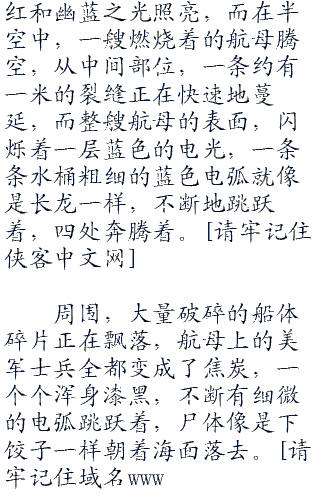 红和幽蓝之光照亮，而在半
空中，一艘燃烧着的航母腾
空，从中间部位，一条约有
一米的裂缝正在快速地蔓
延，而整艘航母的表面，闪
烁着一层蓝色的电光，一条
条水桶粗细的蓝色电弧就像
是长龙一样，不断地跳跃
着，四处奔腾着。[请牢记住
侠客中文网]
周围，大量破碎的船体
碎片正在飘落，航母上的美
军士兵全都变成了焦炭，一
个个浑身漆黑，不断有细微
的电弧跳跃着，尸体像是下
饺子一样朝着海面落去。[请
牢记住域名www